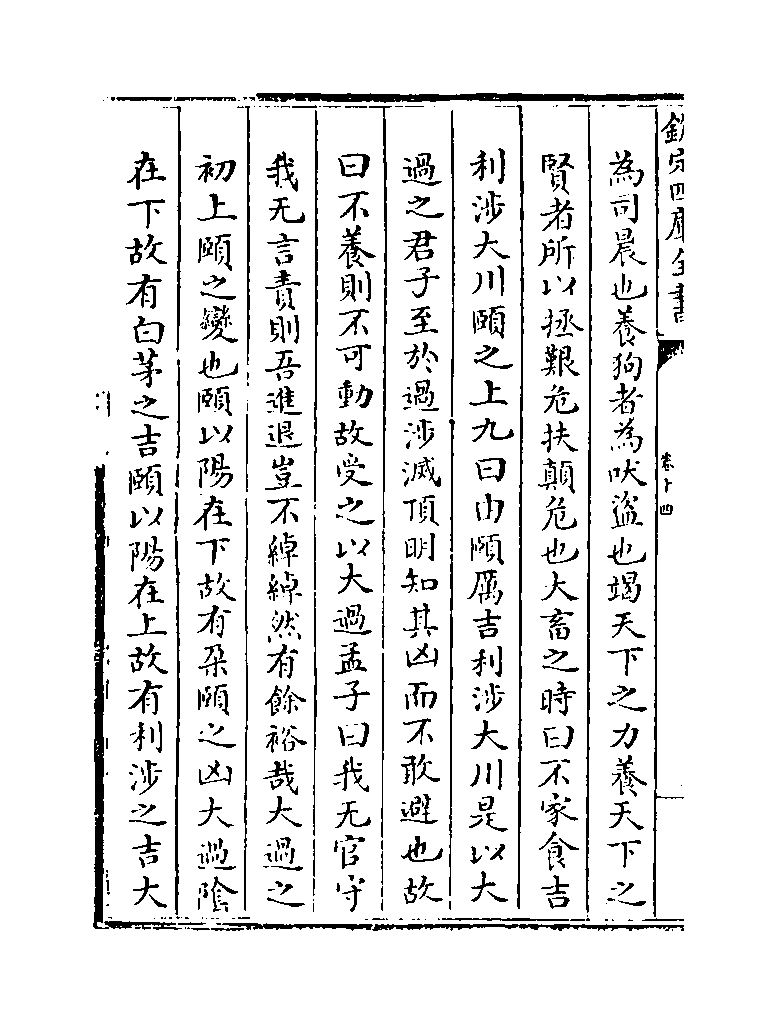 欽定四庫全書
卷十四
為司晨也養狗者為吠盜也竭天下之力養天下之
賢者所以拯艱危扶顛危也大畜之時曰不家食吉
利涉大川頤之上九曰由頤厲吉利涉大川是以大
過之君子至於過涉滅頂明知其凶而不敢避也故
曰不養則不可動故受之以大過孟子曰我无官守
我无言責則吾進退豈不綽綽然有餘裕哉大過之
初上頤之變也頤以陽在下故有朶頤之凶大過陰
在下故有白茅之吉頤以陽在上故有利涉之吉大